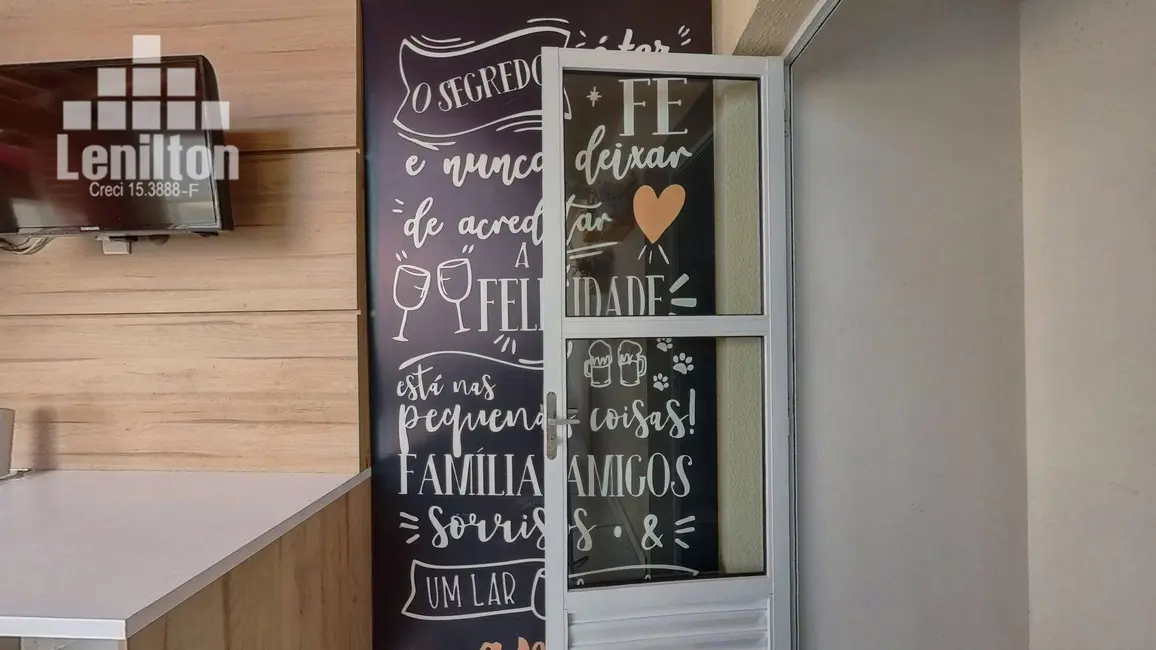 Lenilton
Creci 15.3888-F
O SEGREDO é ter
FÉ
e nunca deixar
de acreditar
A
FELICIDADE
está nas
pequenas coisas!
FAMÍLIA AMIGOS
sorrisos • &
UM LAR